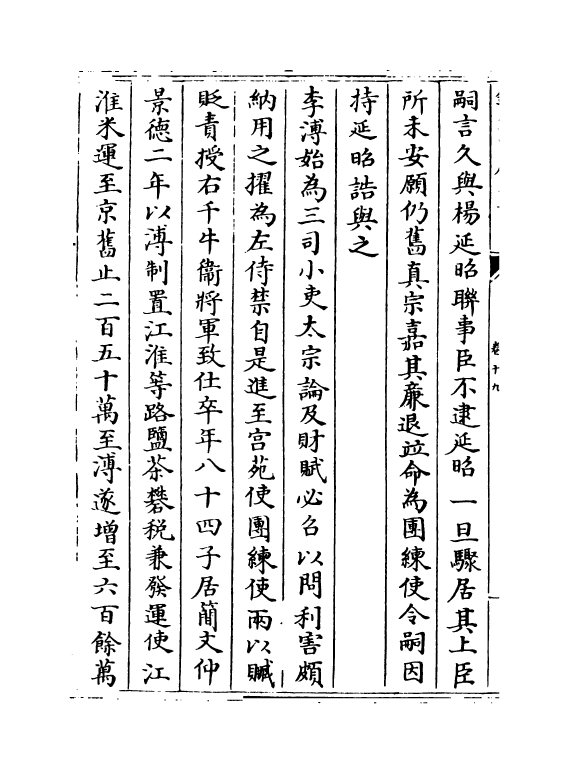 嗣言久與楊延昭聯事臣不逮延昭一旦驟居其上臣
所未安願仍舊真宗嘉其廉退竝命為團練使令嗣因
持延昭誥與之
李溥始為三司小吏太宗論及財賦必召以問利害頗
納用之擢為左侍禁自是進至宫苑使團練使兩以贓
貶責授右千牛衞將軍致仕卒年八十四子居簡文仲
景德二年以溥制置江淮等路鹽茶礬税兼發運使江
淮米運至京舊止二百五十萬至溥遂增至六百餘萬
卷十九